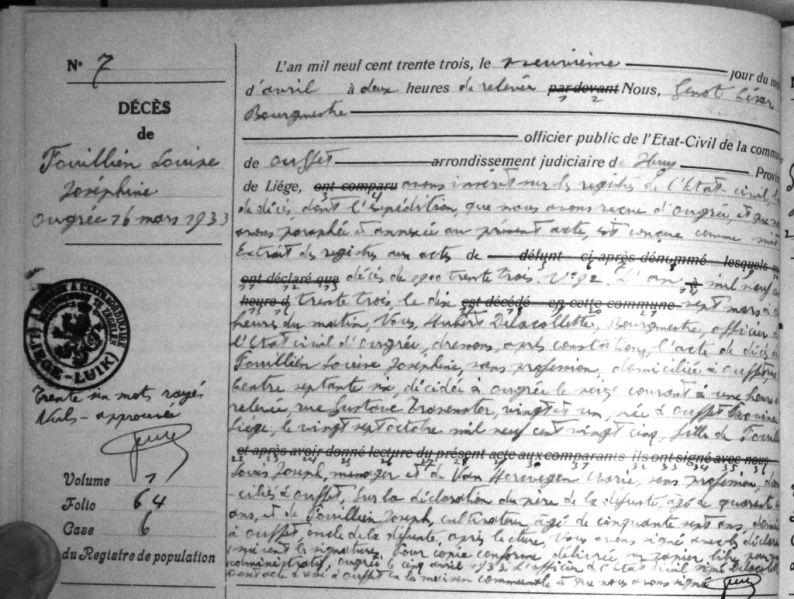 N° 7
DÉCÈS
de
Fouillien Louise
Joséphine
Ougrée 16 mars 1933
LIEGE-LUIK
Trente six mots rayés
Nuls - approuvée
Volume 1
Folio 64
Case 6
du Registre de population
L'an mil neuf cent trente trois, le neuvième jour du
d'avril à deux heures de relevée par devant Nous, Genot César
Bourgmestre
officier public de l'Etat-Civil de la
de Ouffet arrondissement judiciaire d Huy
de Liége, ont comparu avons inscrit sur les registres de l'Etat civil,
de décès dont l'expédition, que nous avons reçue d'Ougrée, et que
avons paraphée et annexée au présent acte, est conçue comme suit
Extrait des registres aux actes de défunt ci après dénommé lesquels
ont déclaré que décès de 1900 trente trois. N° 92. L'an mil neuf
heure d trente trois, le dix est décédé en cette commune sept mars à
heures du matin, Nous, Hubert Delacollette, Bourgmestre, officier
l'Etat civil d'Ougrée, dressons, après constatation, l'acte de décès
Fouillien Louise Joséphine, sans profession, domiciliée à Ouffet,
décédée à Ougrée le seize courant à une heure
relevée, rue Gustave Trasenster, vingt et un, née à Ouffet
Liége, le vingt sept octobre mil neuf cent vingt cinq, fille de
et après avoir donné lecture du présent acte aux comparants ils ont signé avec nous
Louis Joseph, et de Van Marie, sans profession,
ciliés à Ouffet, Sur la déclaration du père de la défunte, âgé de quarante
ans, et de Fouillien Joseph, cultivateur, âgé de cinquante sept ans,
à Ouffet, oncle de la défunte, après lecture, Nous avons signé avec les
Pour copie conforme délivrée sur papier libre
administratif, Ougrée le cinq avril 1933 L'officier de l'état civil signé
à Ouffet en la maison communale et que nous avons signé